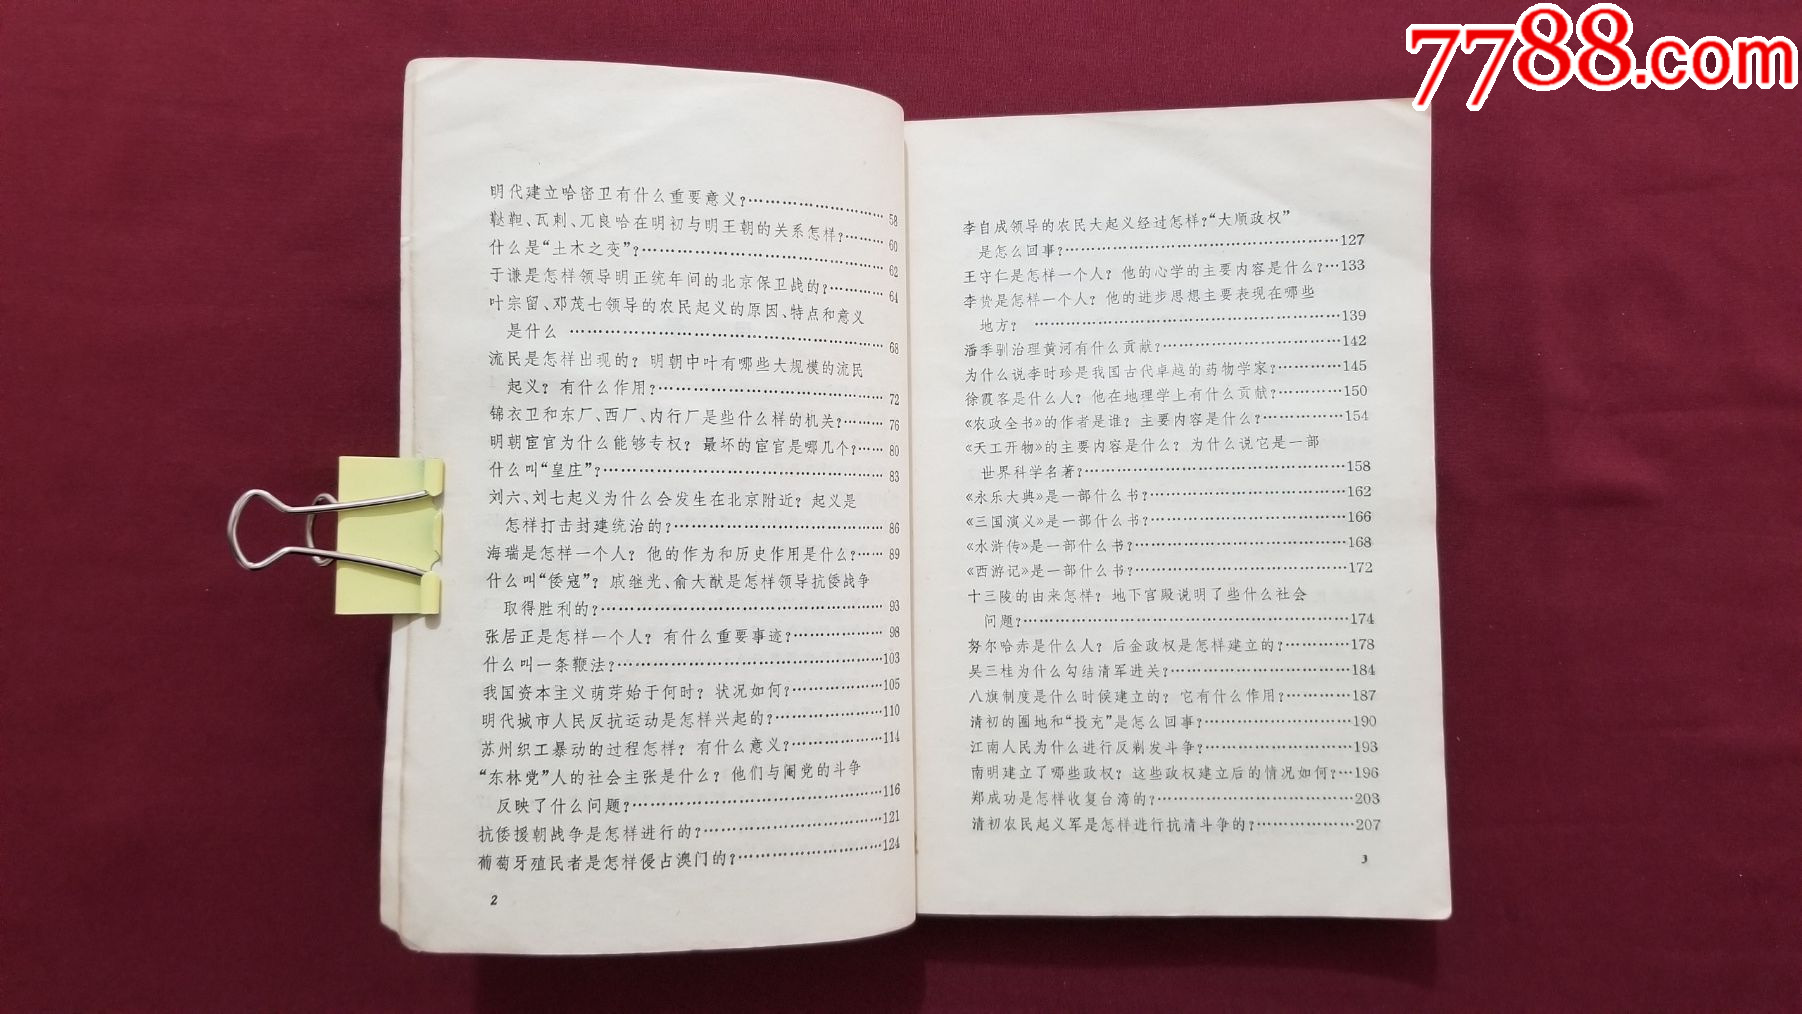 7788.com
明代建立哈密卫有什么重要意义?……………………58
鞑靼、瓦剌、兀良哈在明初与明王朝的关系怎样?……60
什么是“土木之变”?……………………………………62
于谦是怎样领导明正统年间的北京保卫战的?………64
叶宗留、邓茂七领导的农民起义的原因、特点和意义
是什么 ……………………………………………………68
流民是怎样出现的? 明朝中叶有哪些大规模的流民
起义? 有什么作用?……………………………………72
锦衣卫和东厂、西厂、内行厂是些什么样的机关?………76
明朝宦官为什么能够专权? 最坏的宦官是哪几个?……80
什么叫“皇庄”?……………………………………………83
刘六、刘七起义为什么会发生在北京附近? 起义是
怎样打击封建统治的?…………………………………86
海瑞是怎样一个人? 他的作为和历史作用是什么?……89
什么叫“倭寇”? 戚继光、俞大猷是怎样领导抗倭战争
取得胜利的?………………………………………………93
张居正是怎样一个人? 有什么重要事迹?……………98
什么叫一条鞭法?…………………………………………103
我国资本主义萌芽始于何时? 状况如何?……………105
明代城市人民反抗运动是怎样兴起的?………………110
苏州织工暴动的过程怎样? 有什么意义?……………114
“东林党”人的社会主张是什么? 他们与阉党的斗争
反映了什么问题?………………………………………116
抗倭援朝战争是怎样进行的?……………………………121
葡萄牙殖民者是怎样侵占澳门的?………………………124
2
李自成领导的农民大起义经过怎样?“大顺政权”
是怎么回事?……………………………………………127
王守仁是怎样一个人? 他的心学的主要内容是什么?…133
李贽是怎样一个人? 他的进步思想主要表现在哪些
地方? ……………………………………………………139
潘季驯治理黄河有什么贡献?……………………………142
为什么说李时珍是我国古代卓越的药物学家?…………145
徐霞客是什么人? 他在地理学上有什么贡献?…………150
《农政全书》的作者是谁? 主要内容是什么?……………154
《天工开物》的主要内容是什么? 为什么说它是一部
世界科学名著?…………………………………………158
《永乐大典》是一部什么书?………………………………162
《三国演义》是一部什么书?………………………………166
《水浒传》是一部什么书?…………………………………168
《西游记》是一部什么书?…………………………………172
十三陵的由来怎样? 地下宫殿说明了些什么社会
问题?……………………………………………………174
努尔哈赤是什么人? 后金政权是怎样建立的?…………178
吴三桂为什么勾结清军进关?……………………………184
八旗制度是什么时候建立的? 它有什么作用?…………187
清初的圈地和“投充”是怎么回事?………………………190
江南人民为什么进行反剃发斗争?………………………193
南明建立了哪些政权? 这些政权建立后的情况如何?…196
郑成功是怎样收复台湾的?………………………………203
清初农民起义军是怎样进行抗清斗争的?………………207
3